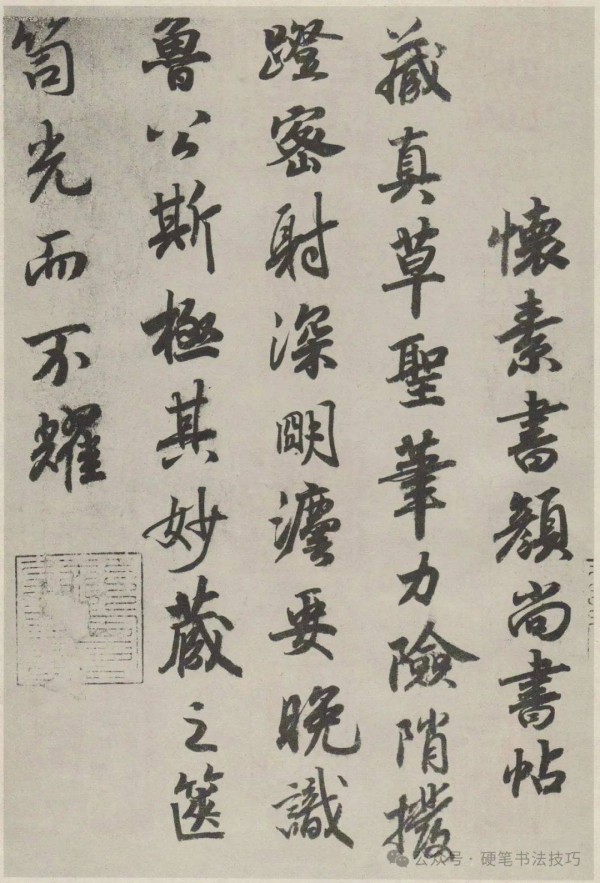 懷素書顏尚書帖
藏真草聖筆力險陗撥
蹬密射深明瀍要晚識
魯公斯極其妙藏之篋
笥光而不耀
公众号·硬笔书法技巧